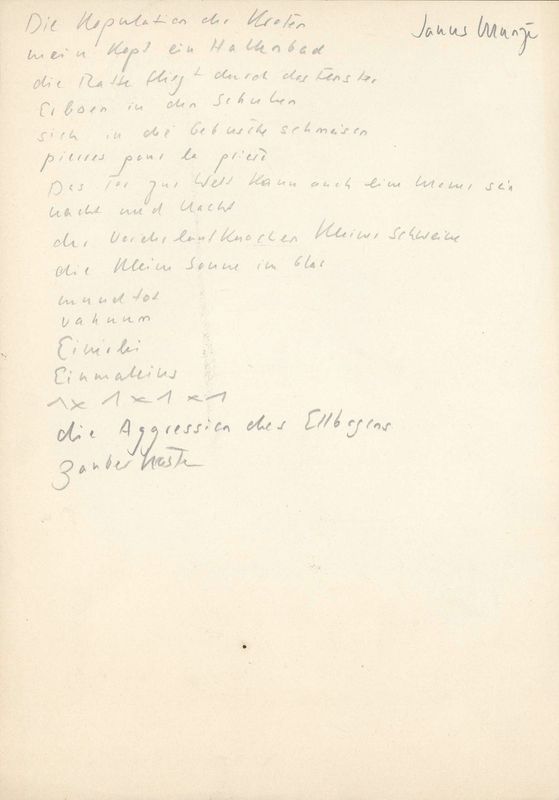 Die Kopulation der Kröten
mein Kopf ein Hallenbad
die Ratte fliegt durch das Fenster
Erbsen in den Schuhen
sich in die Gebüsche schmeissen
pierres pour la
Das Tor zur Welt kann auch eine sein
nacht und Nacht
der kleine Schweine
die kleine Sonne im Glas
mundtot
vakuum
Einerlei
Einmaleins
1x 1 x 1 x 1
die Aggression des Ellbogens
Zauberkasten